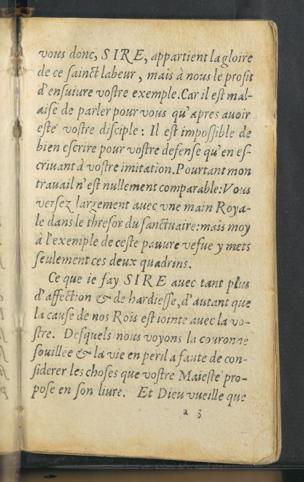 vous donc, SIRE, appartient la gloire
de ce sainct labeur, mais à nous le profit
d'ensuiure vostre exemple. Car il est mal-
aise de parler pour vous qu'apres auoir
esté vostre disciple: Il est impossible de
bien escrire pour vostre defense qu'en es-
criuant à vostre imitation. Pourtant mon
trauail n'est nullement comparable: Vous
versez largement auec vne main Roya-
le dans le thresor du sanctuaire: mais moy
à l'exemple de ceste pauure vefue y mets
seulement ces deux quadrins.
Ce que ie fay SIRE auec tant plus
d'affection & de hardiesse, d'autant que
la cause de nos Rois est iointe auec la vo-
stre. Desquels nous voyons la couronne
souillee & la vie en peril a faute de con-
siderer les choses que vostre Maiesté pro-
pose en son liure. Et Dieu vueille que
a 3